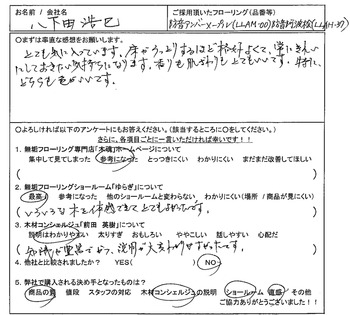 お名前 / 会社名
ご採用頂いたフローリング(品番等)
八下田 浩己
防音アンバーメープル(LLAM-00) 防音
〇まずは率直な感想をお願いします。
とても気に入っています。床がうっとりするほど格好よくて、常にきれい
にしておきたい気持ちになります。香りも肌ざわりもとてもいいです。特に、
どちらも色がいいです。
〇よろしければ以下のアンケートにもお答えください。(該当するところに〇をしてください。)
さらに、各項目ごとに一言いただければ幸いです!!
1. 無垢フローリング専門店「木魂」ホームページについて
集中して見てしまった 参考になった とっつきにくい わかりにくい まだまだ改善してほしい
2. 無垢フローリングショールーム「ゆらぎ」について
最高! 参考になった 他のショールームと変わらない わかりにくい(場所 / 商品が見にくい)
(いろいろな木を体感できてとてもよかったです。)
3. 木材コンシェルジュ「前田 英樹」について
説明はわかりやすい 太りすぎ おもしろい ややこしい 話しやすい 心配だ
(知識が豊富でかつ、説明が大変わかりやすかったです。)
4. 他社と比較されましたか? YES( ) NO
5. 弊社で購入される決め手となったものは?
商品の質 値段 スタッフの対応 木材コンシェルジュの説明 ショールーム 直感 その他
ご協力ありがとうございました!!